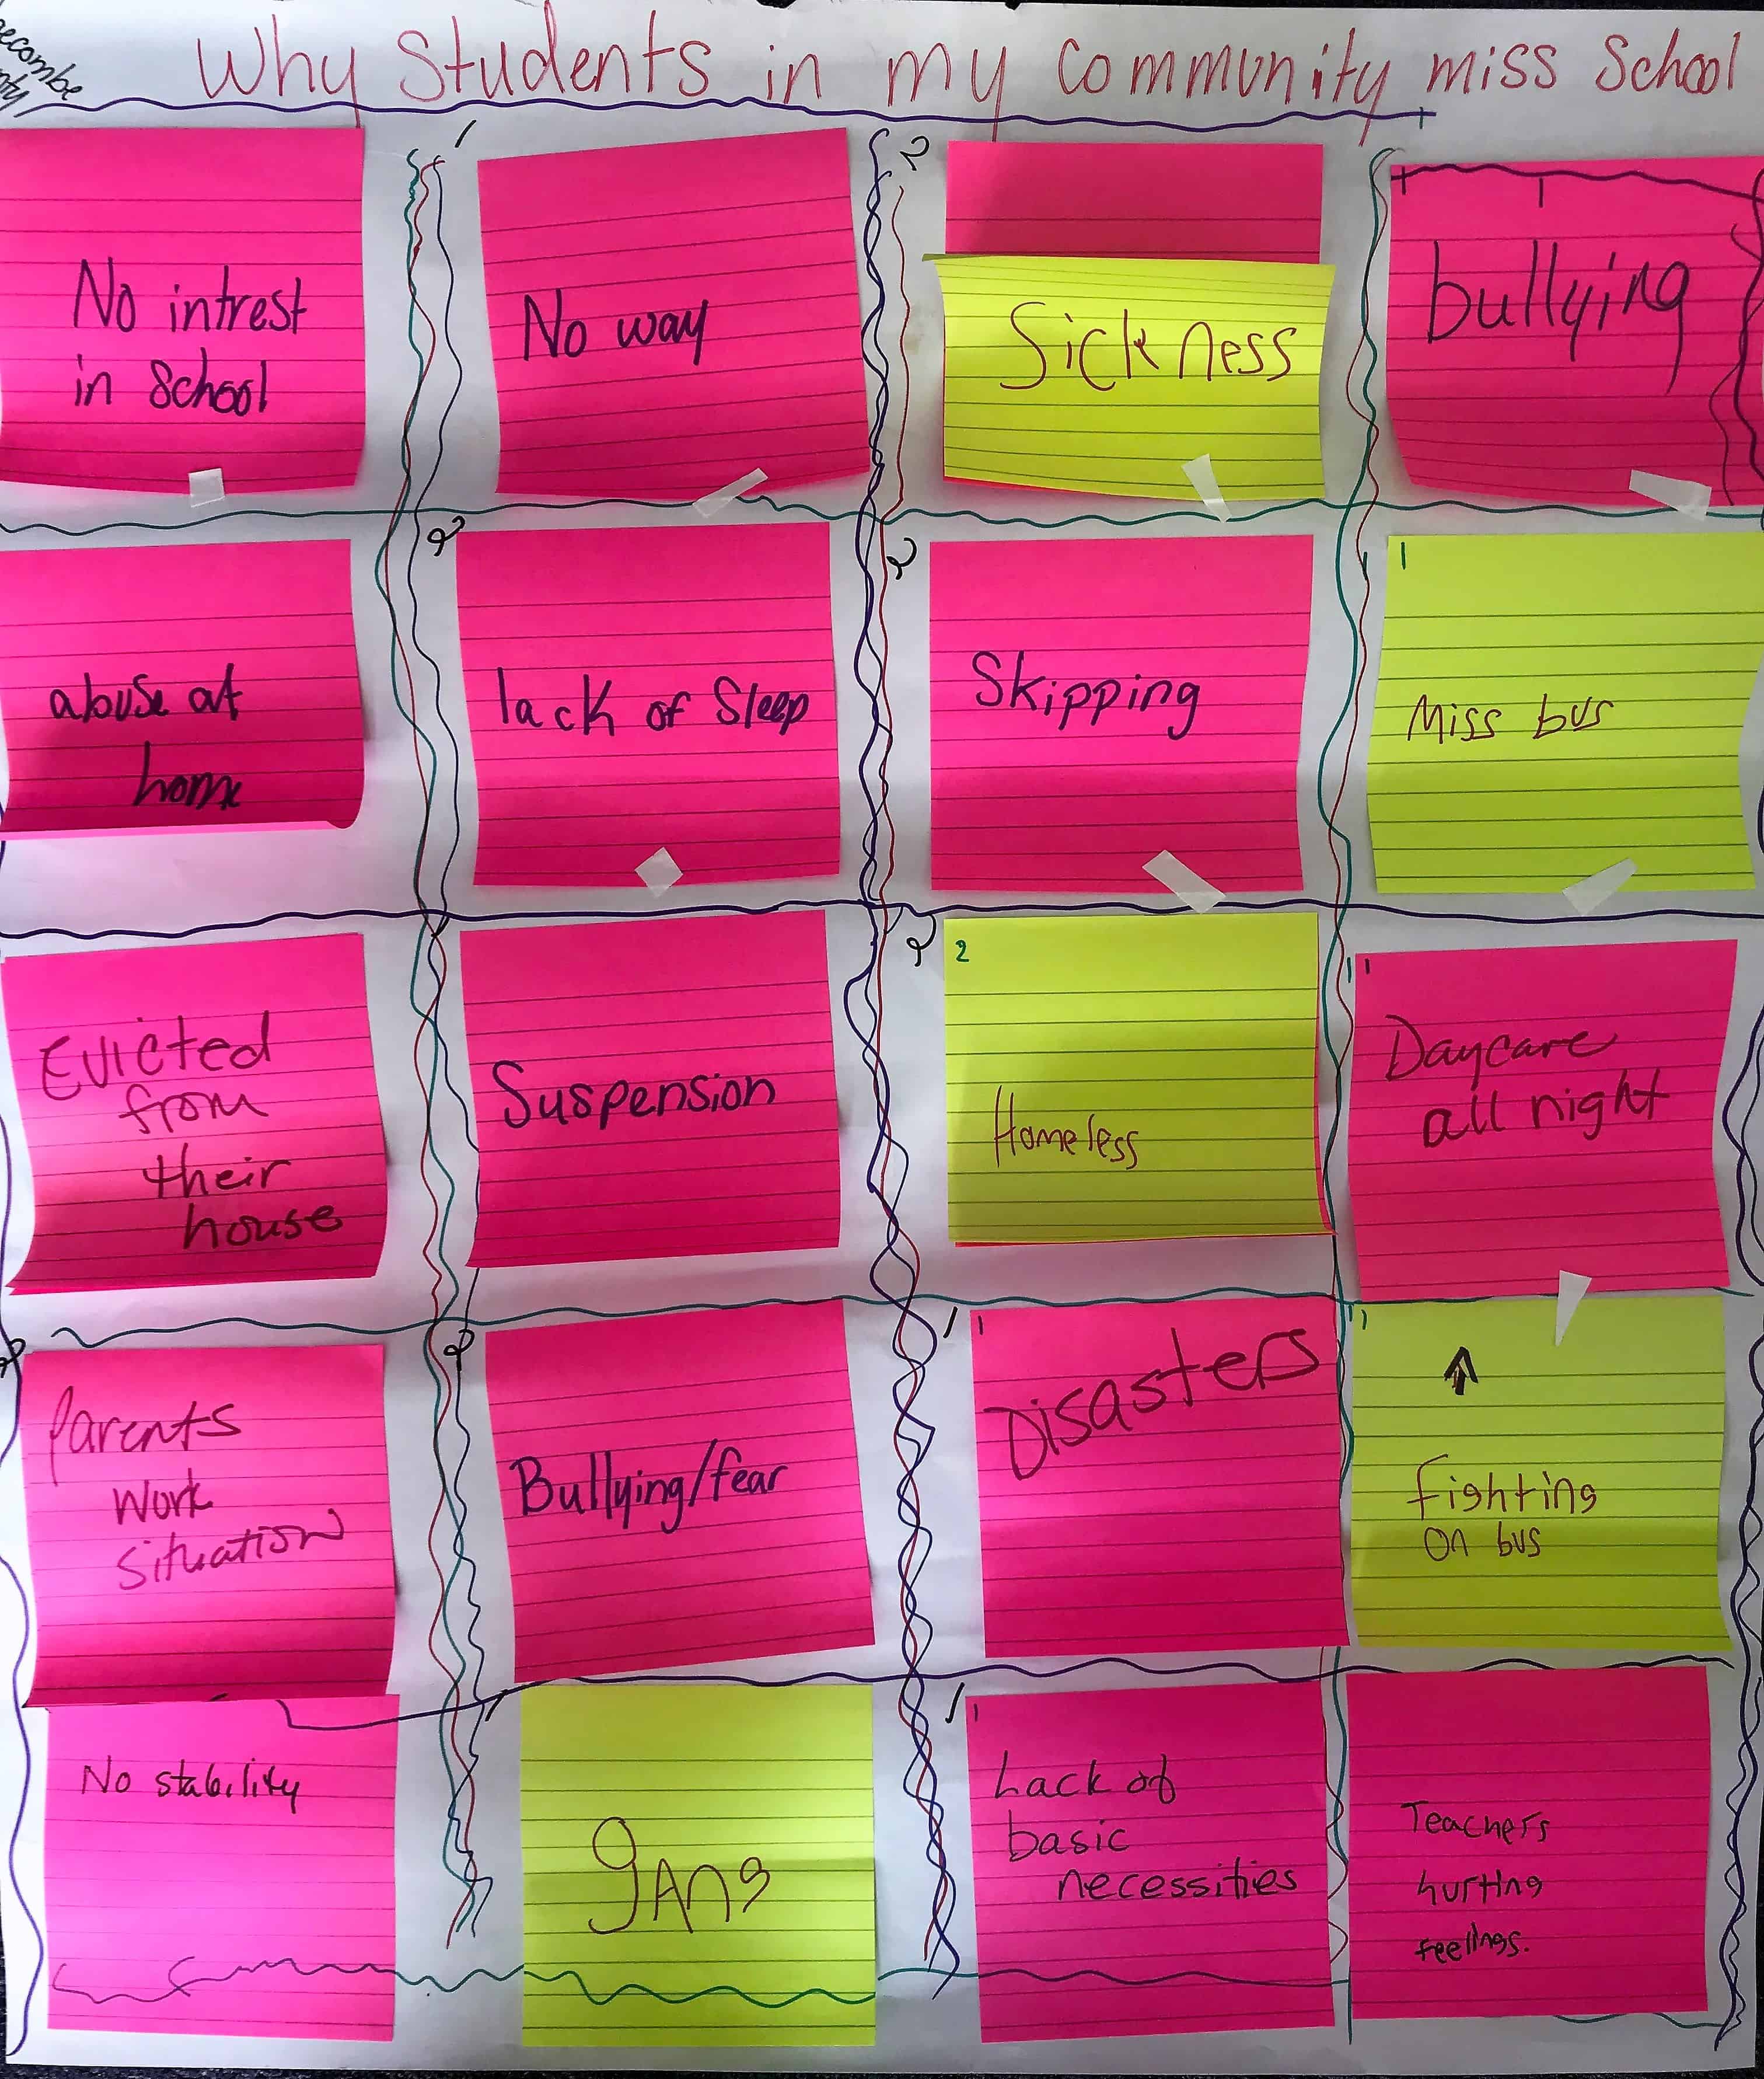 ecombe
nty
Why Students in my community miss School
No intrest
in School
1
No way
2
Sickness
1
bullying
abuse at
home
2
lack of Sleep
2
Skipping
1
Miss bus
Evicted
from
their
house
Suspension
2
2
Homeless
1
1
Daycare
all night
2
Parents
work
situation
2
Bullying/fear
1
1
Disasters
1
fighting
on bus
No stability
1
gang
1
1
Lack of
basic
necessities
Teachers
hurting
feelings.